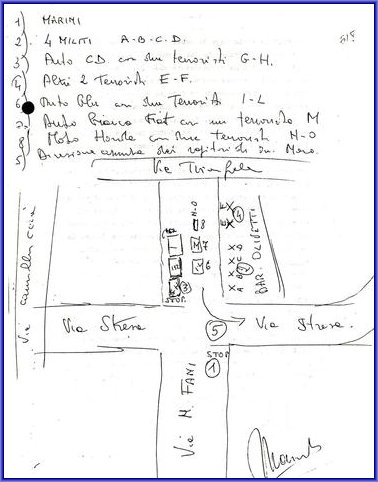 1) MARINI
2) 4 MILITI A-B-C.D.
3) Auto C.D. con due terroristi G-H.
4) Altri 2 Terroristi E-F.
6 Auto Blu con due Terroristi I-L
7 Auto Bianca Fiat con un terrorista M
8 Moto Honda con due terroristi N-O
5) Direzione dei rapitori di Moro.
Via Trionfale
Via Stresa
Via Stresa.
Via M. FANI
BAR. OLIVETTI
N-O
8
7
6
M
E
F
4
A B C D
2
3
STOP
5
STOP
1